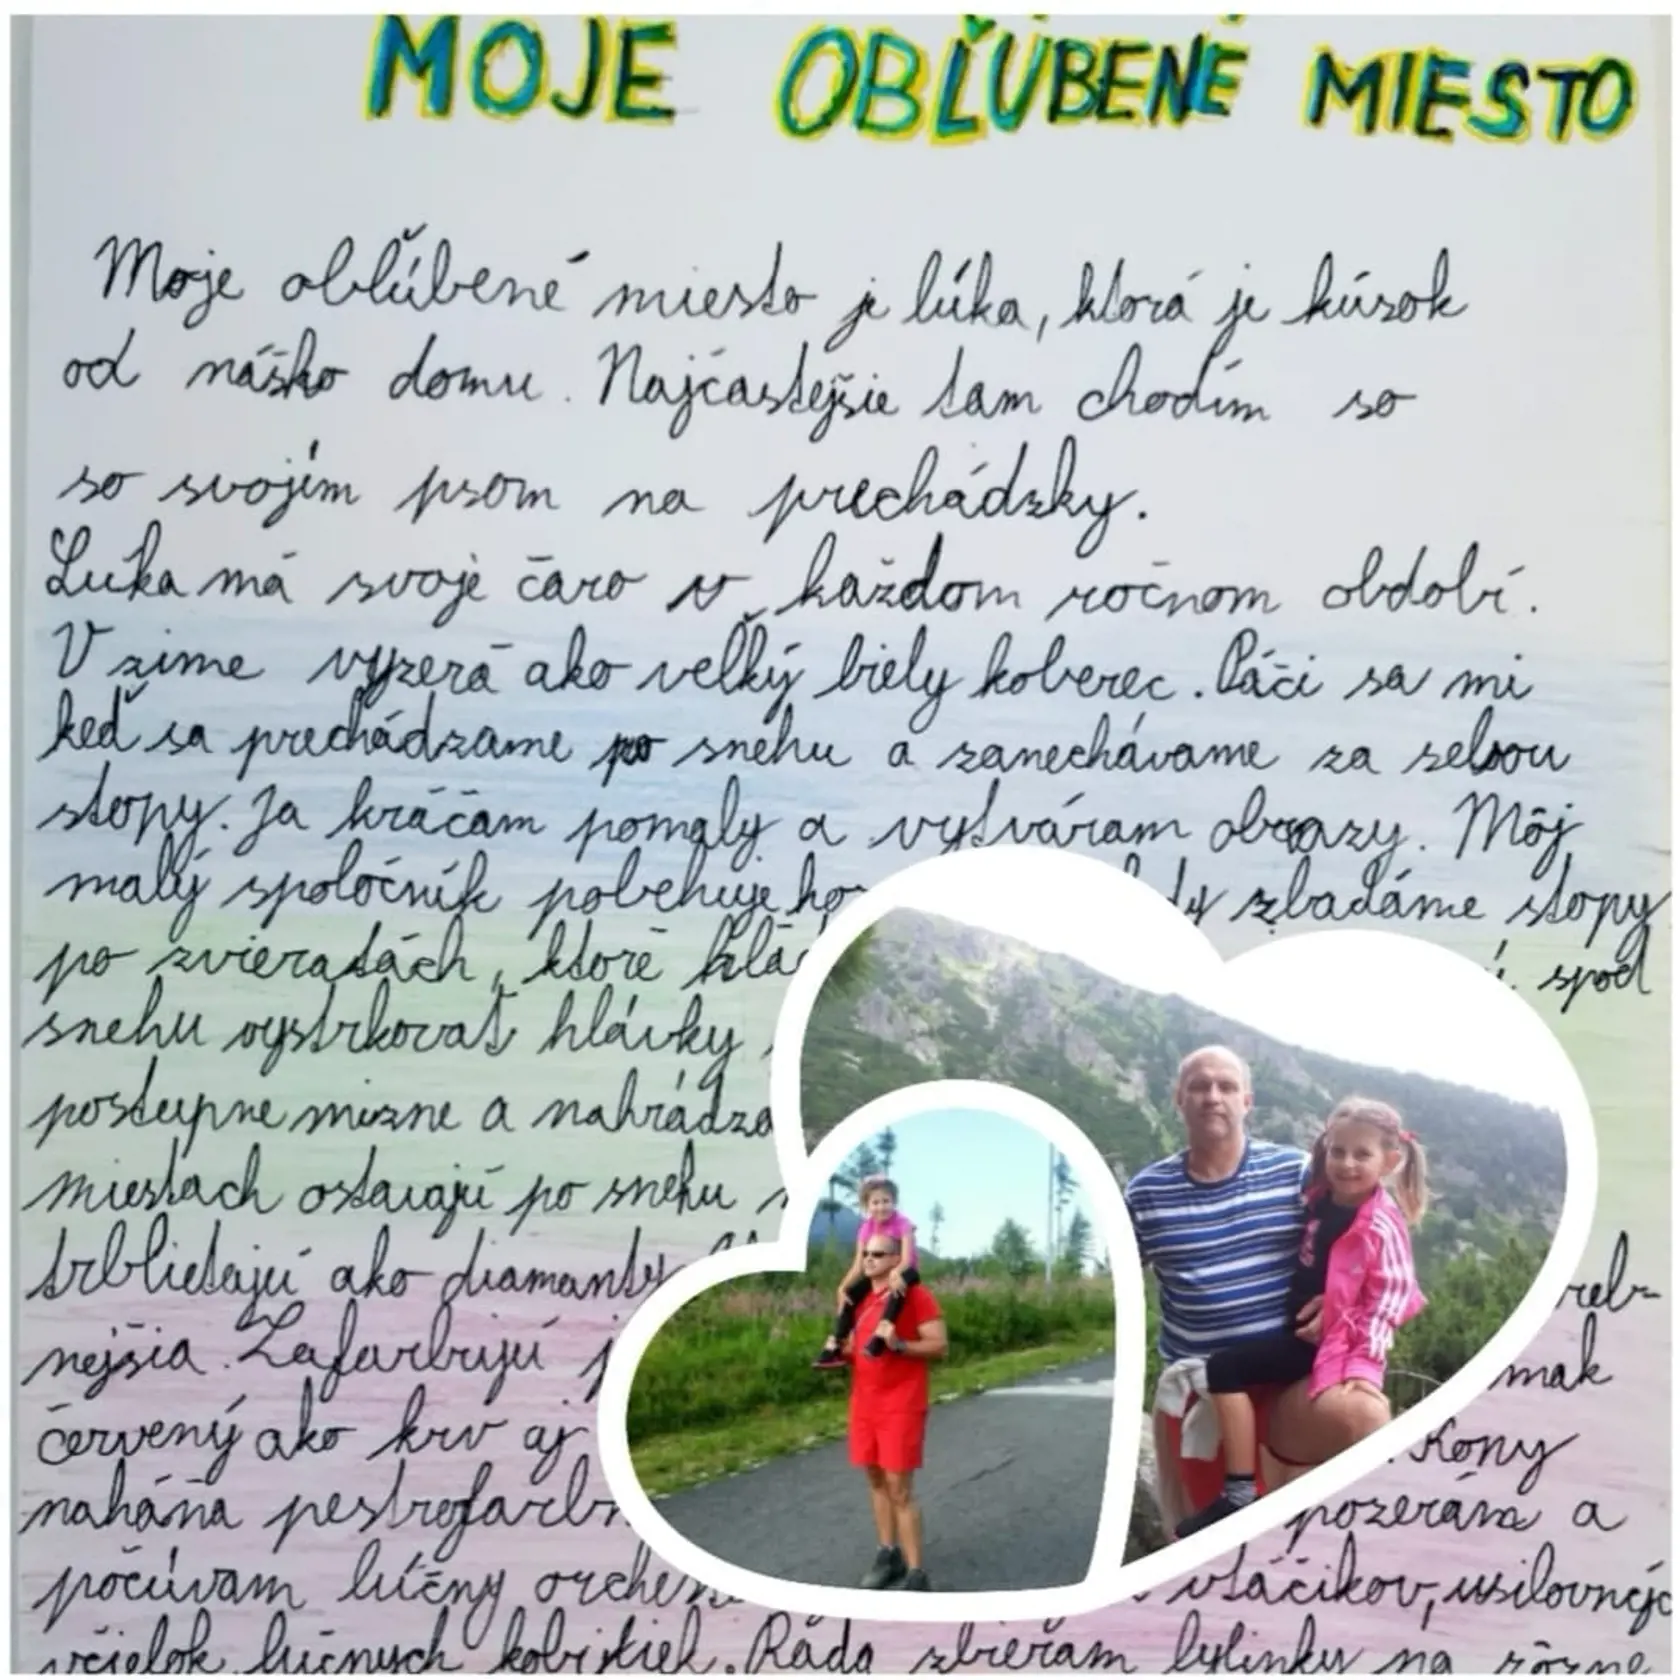 MOJE OBĽÚBENÉ MIESTO
Moje obľúbené miesto je lúka, ktorá je kúsok
od nášho domu. Najčastejšie tam chodím so
so svojím psom na prechádzky.
Lúka má svoje čaro v každom ročnom období.
V zime vyzerá ako veľký biely koberec. Páči sa mi
keď sa prechádzame po snehu a zanechávame za sebou
stopy. Ja kráčam pomaly a vytváram obrazy. Môj
malý spoločník pobehuje zbadáme stopy
po zvieratách, ktoré spod
snehu vystrkovať hlávky
postupne mizne a nahrádza
miestach ostávajú po snehu
trblietajú ako diamanty
nejšia. Zafarbujú mak
červený ako krv aj Kony
naháňa pozerám a
počúvam lúčny vtáčikov, usilovných
včielok, lúčnych kobyliek. Rada zbieram bylinky na rôzne